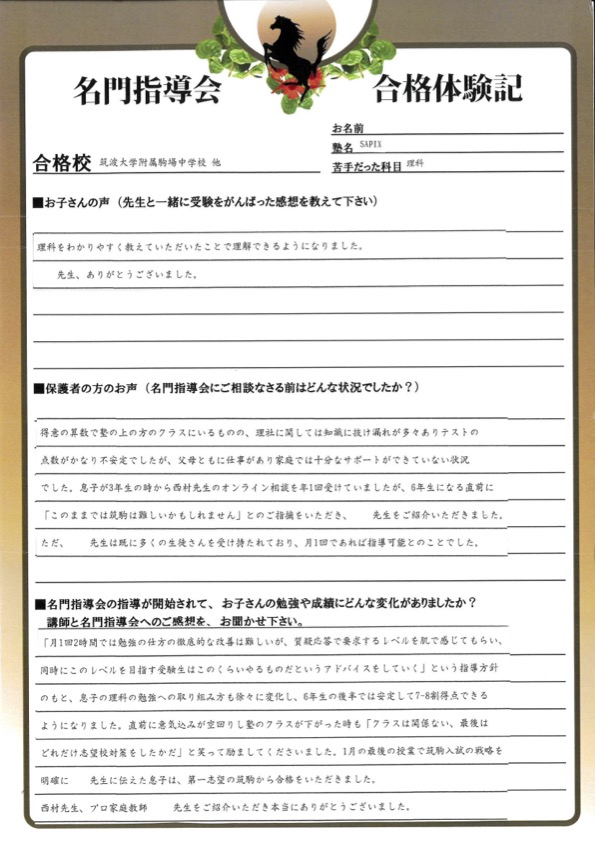 名門指導会
合格体験記
お名前
塾名 SAPIX
合格校 筑波大学附属駒場中学校 他
苦手だった科目 理科
■お子さんの声（先生と一緒に受験をがんばった感想を教えて下さい）
理科をわかりやすく教えていただいたことで理解できるようになりました。
先生、ありがとうございました。
■保護者の方のお声（名門指導会にご相談なさる前はどんな状況でしたか？）
得意の算数で塾の上の方のクラスにいるものの、理社に関しては知識に抜け漏れが多々ありテストの
点数がかなり不安定でしたが、父母ともに仕事があり家庭では十分なサポートができていない状況
でした。息子が3年生の時から西村先生のオンライン相談を年1回受けていましたが、6年生になる直前に
「このままでは筑駒は難しいかもしれません」とのご指摘をいただき、 先生をご紹介いただきました。
ただ、 先生は既に多くの生徒さんを受け持たれており、月1回であれば指導可能とのことでした。
■名門指導会の指導が開始されて、お子さんの勉強や成績にどんな変化がありましたか？
講師と名門指導会へのご感想を、お聞かせ下さい。
「月1回2時間では勉強の仕方の徹底的な改善は難しいが、質疑応答で要求するレベルを肌で感じてもらい、
同時にこのレベルを目指す受験生はこのくらいやるものだというアドバイスをしていく」という指導方針
のもと、息子の理科の勉強への取り組み方も徐々に変化し、6年生の後半では安定して7-8割得点できる
ようになりました。直前に意気込みが空回りし塾のクラスが下がった時も「クラスは関係ない、最後は
どれだけ志望校対策をしたかだ」と笑って励ましてくださいました。1月の最後の授業で筑駒入試の戦略を
明確に 先生に伝えた息子は、第一志望の筑駒から合格をいただきました。
西村先生、プロ家庭教師 先生をご紹介いただき本当にありがとうございました。